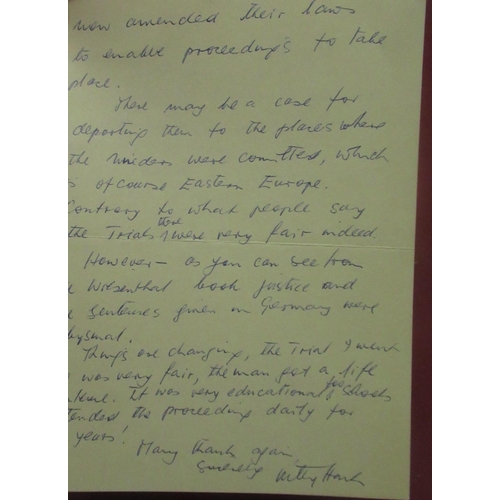 now amended their laws
to enable proceeding's to take
place.
There may be a case for
deporting them to the places where
the murders were committed, which
is of course Eastern Europe.
Contrary to what people say
the Trials there were very fair indeed
However – as you can see from
Wiesenthal book justice and
sentences given in Germany were
abysmal.
Things are changing, the Trial I went
was very fair, the man got a life
It was very educational, for schools
attended the proceeding daily for
years!
Many thanks again
Sincerely Kitty Hart